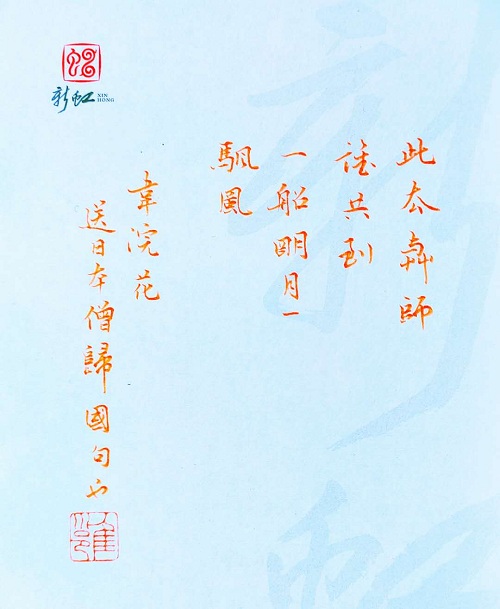 新虹 XIN HONG
此去與師
誰共到
一船明月一
颿風
韋浣花
送日本僧歸國句也